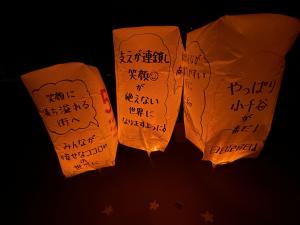 笑顔に
満ち溢れる
街へ
みんなが
幸せなココロの
世界に
支えが連鎖し
笑顔☺
が
絶えない
世界に
なりますように!
やっぱり
小千谷
が
一番だ!